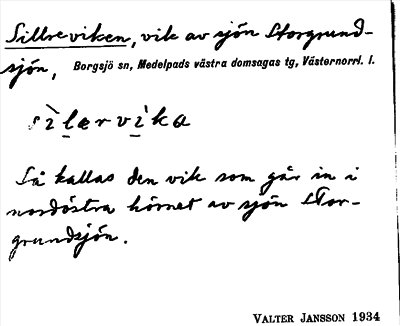 Sillreviken, vik av sjön Storgrund-
sjön, Borgsjö sn, Medelpads västra domsagas tg, Västernorrl. l.
sìlærvìka
Så kallas den vik som går in i
nordöstra hörnet av sjön Stor-
grundsjön.
VALTER JANSSON 1934